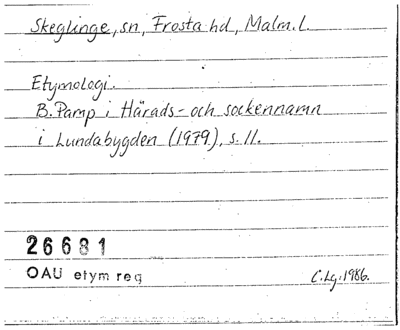 Skeglinge, sn, Frosta hd, Malm. l.
Etymologi.
B. Pamp i Härads- och sockennamn
i Lundabygden (1979), s. 11.
26681
OAU etym reg
C. Lg. 1986.